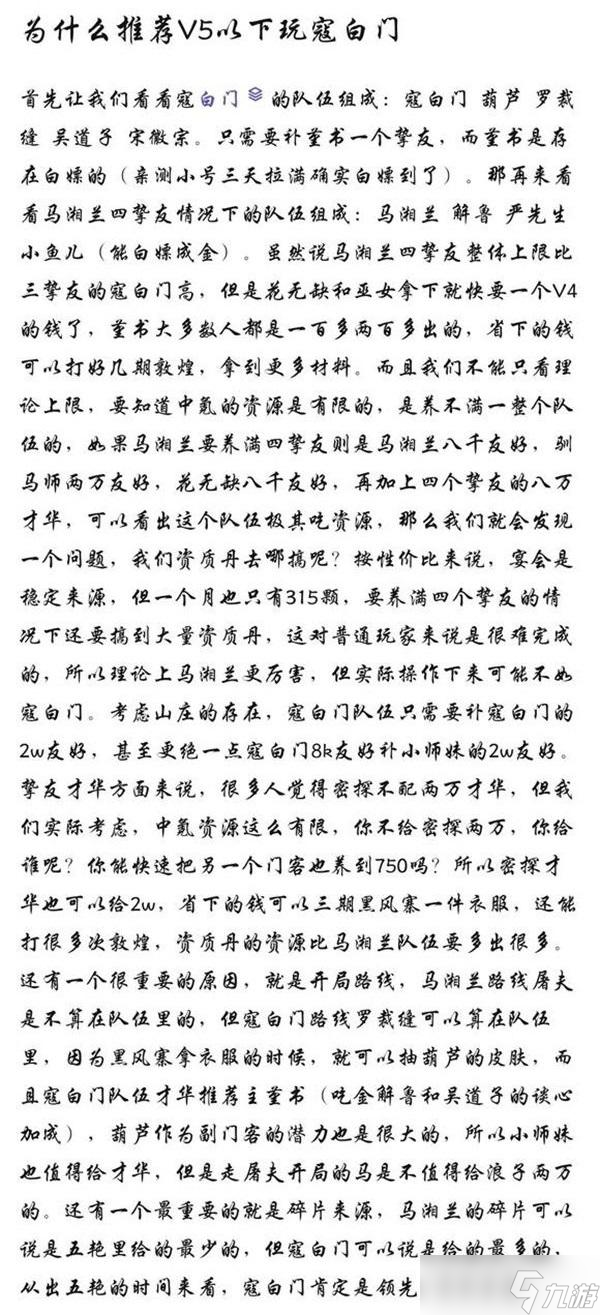 为什么推荐V5以下玩寇白门
首先让我们看看寇白门 的队伍组成：寇白门 葫芦 罗裁
缝 吴道子 宋徽宗。只需要补董书一个挚友，而董书是存
在白嫖的（亲测小号三天拉满确实白嫖到了）。那再来看
看马湘兰四挚友情况下的队伍组成：马湘兰 解鲁 严先生
小鱼儿（能白嫖成金）。虽然说马湘兰四挚友整体上限比
三挚友的寇白门高，但是花无缺和巫女拿下就快要一个V4
的钱了，董书大多数人都是一百多两百多出的，省下的钱
可以打好几期敦煌，拿到更多材料。而且我们不能只看理
论上限，要知道中氪的资源是有限的，是养不满一整个队
伍的，如果马湘兰要养满四挚友则是马湘兰八千友好，驯
马师两万友好，花无缺八千友好，再加上四个挚友的八万
才华，可以看出这个队伍极其吃资源，那么我们就会发现
一个问题，我们资质丹去哪搞呢？按性价比来说，宴会是
稳定来源，但一个月也只有315颗，要养满四个挚友的情
况下还要搞到大量资质丹，这对普通玩家来说是很难完成
的，所以理论上马湘兰更厉害，但实际操作下来可能不如
寇白门。考虑山庄的存在，寇白门队伍只需要补寇白门的
2w友好，甚至更绝一点寇白门8k友好补小师妹的2w友好。
挚友才华方面来说，很多人觉得密探不配两万才华，但我
们实际考虑，中氪资源这么有限，你不给密探两万，你给
谁呢？你能快速把另一个门客也养到750吗？所以密探才
华也可以给2w，省下的钱可以三期黑风寨一件衣服，还能
打很多次敦煌，资质丹的资源比马湘兰队伍要多出很多。
还有一个很重要的原因，就是开局路线，马湘兰路线屠夫
是不算在队伍里的，但寇白门路线罗裁缝可以算在队伍
里，因为黑风寨拿衣服的时候，就可以抽葫芦的皮肤，而
且寇白门队伍才华推荐主董书（吃金解鲁和吴道子的谈心
加成），葫芦作为副门客的潜力也是很大的，所以小师妹
也值得给才华，但是走屠夫开局的马是不值得给浪子两万
的。还有一个最重要的就是碎片来源，马湘兰的碎片可以
说是五艳里给的最少的，但寇白门可以说是给的最多的，
从出五艳的时间来看，寇白门肯定是领先
九游